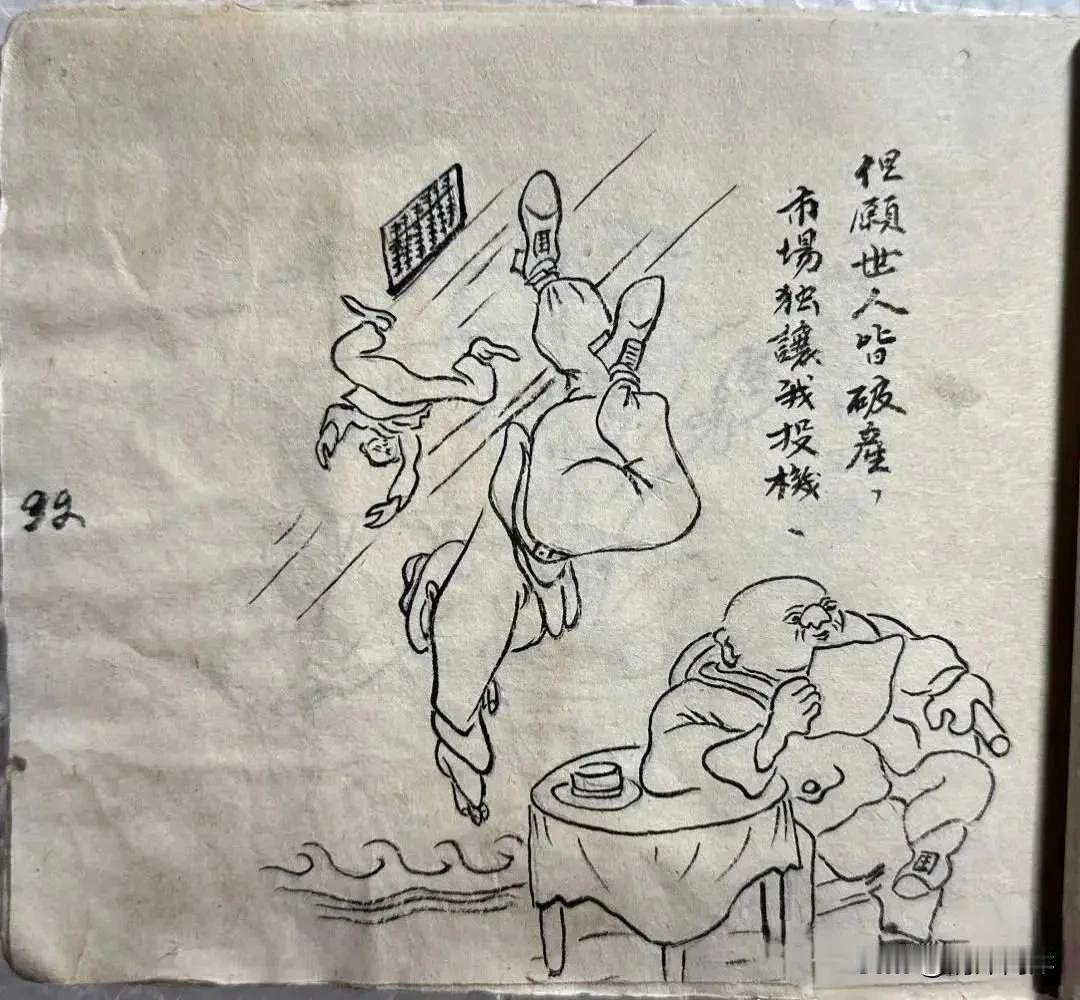 但願世人皆破產，
市場独讓我投機、
92